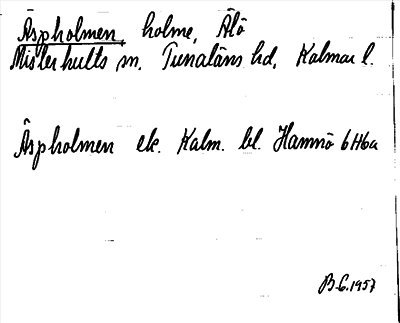 Äspholmen, holme, Älö
Misterhults sn. Tunaläns hd, Kalmar l.
Äspholmen ek. Kalm. bl. Hamnö 6H6a
B.G.1957